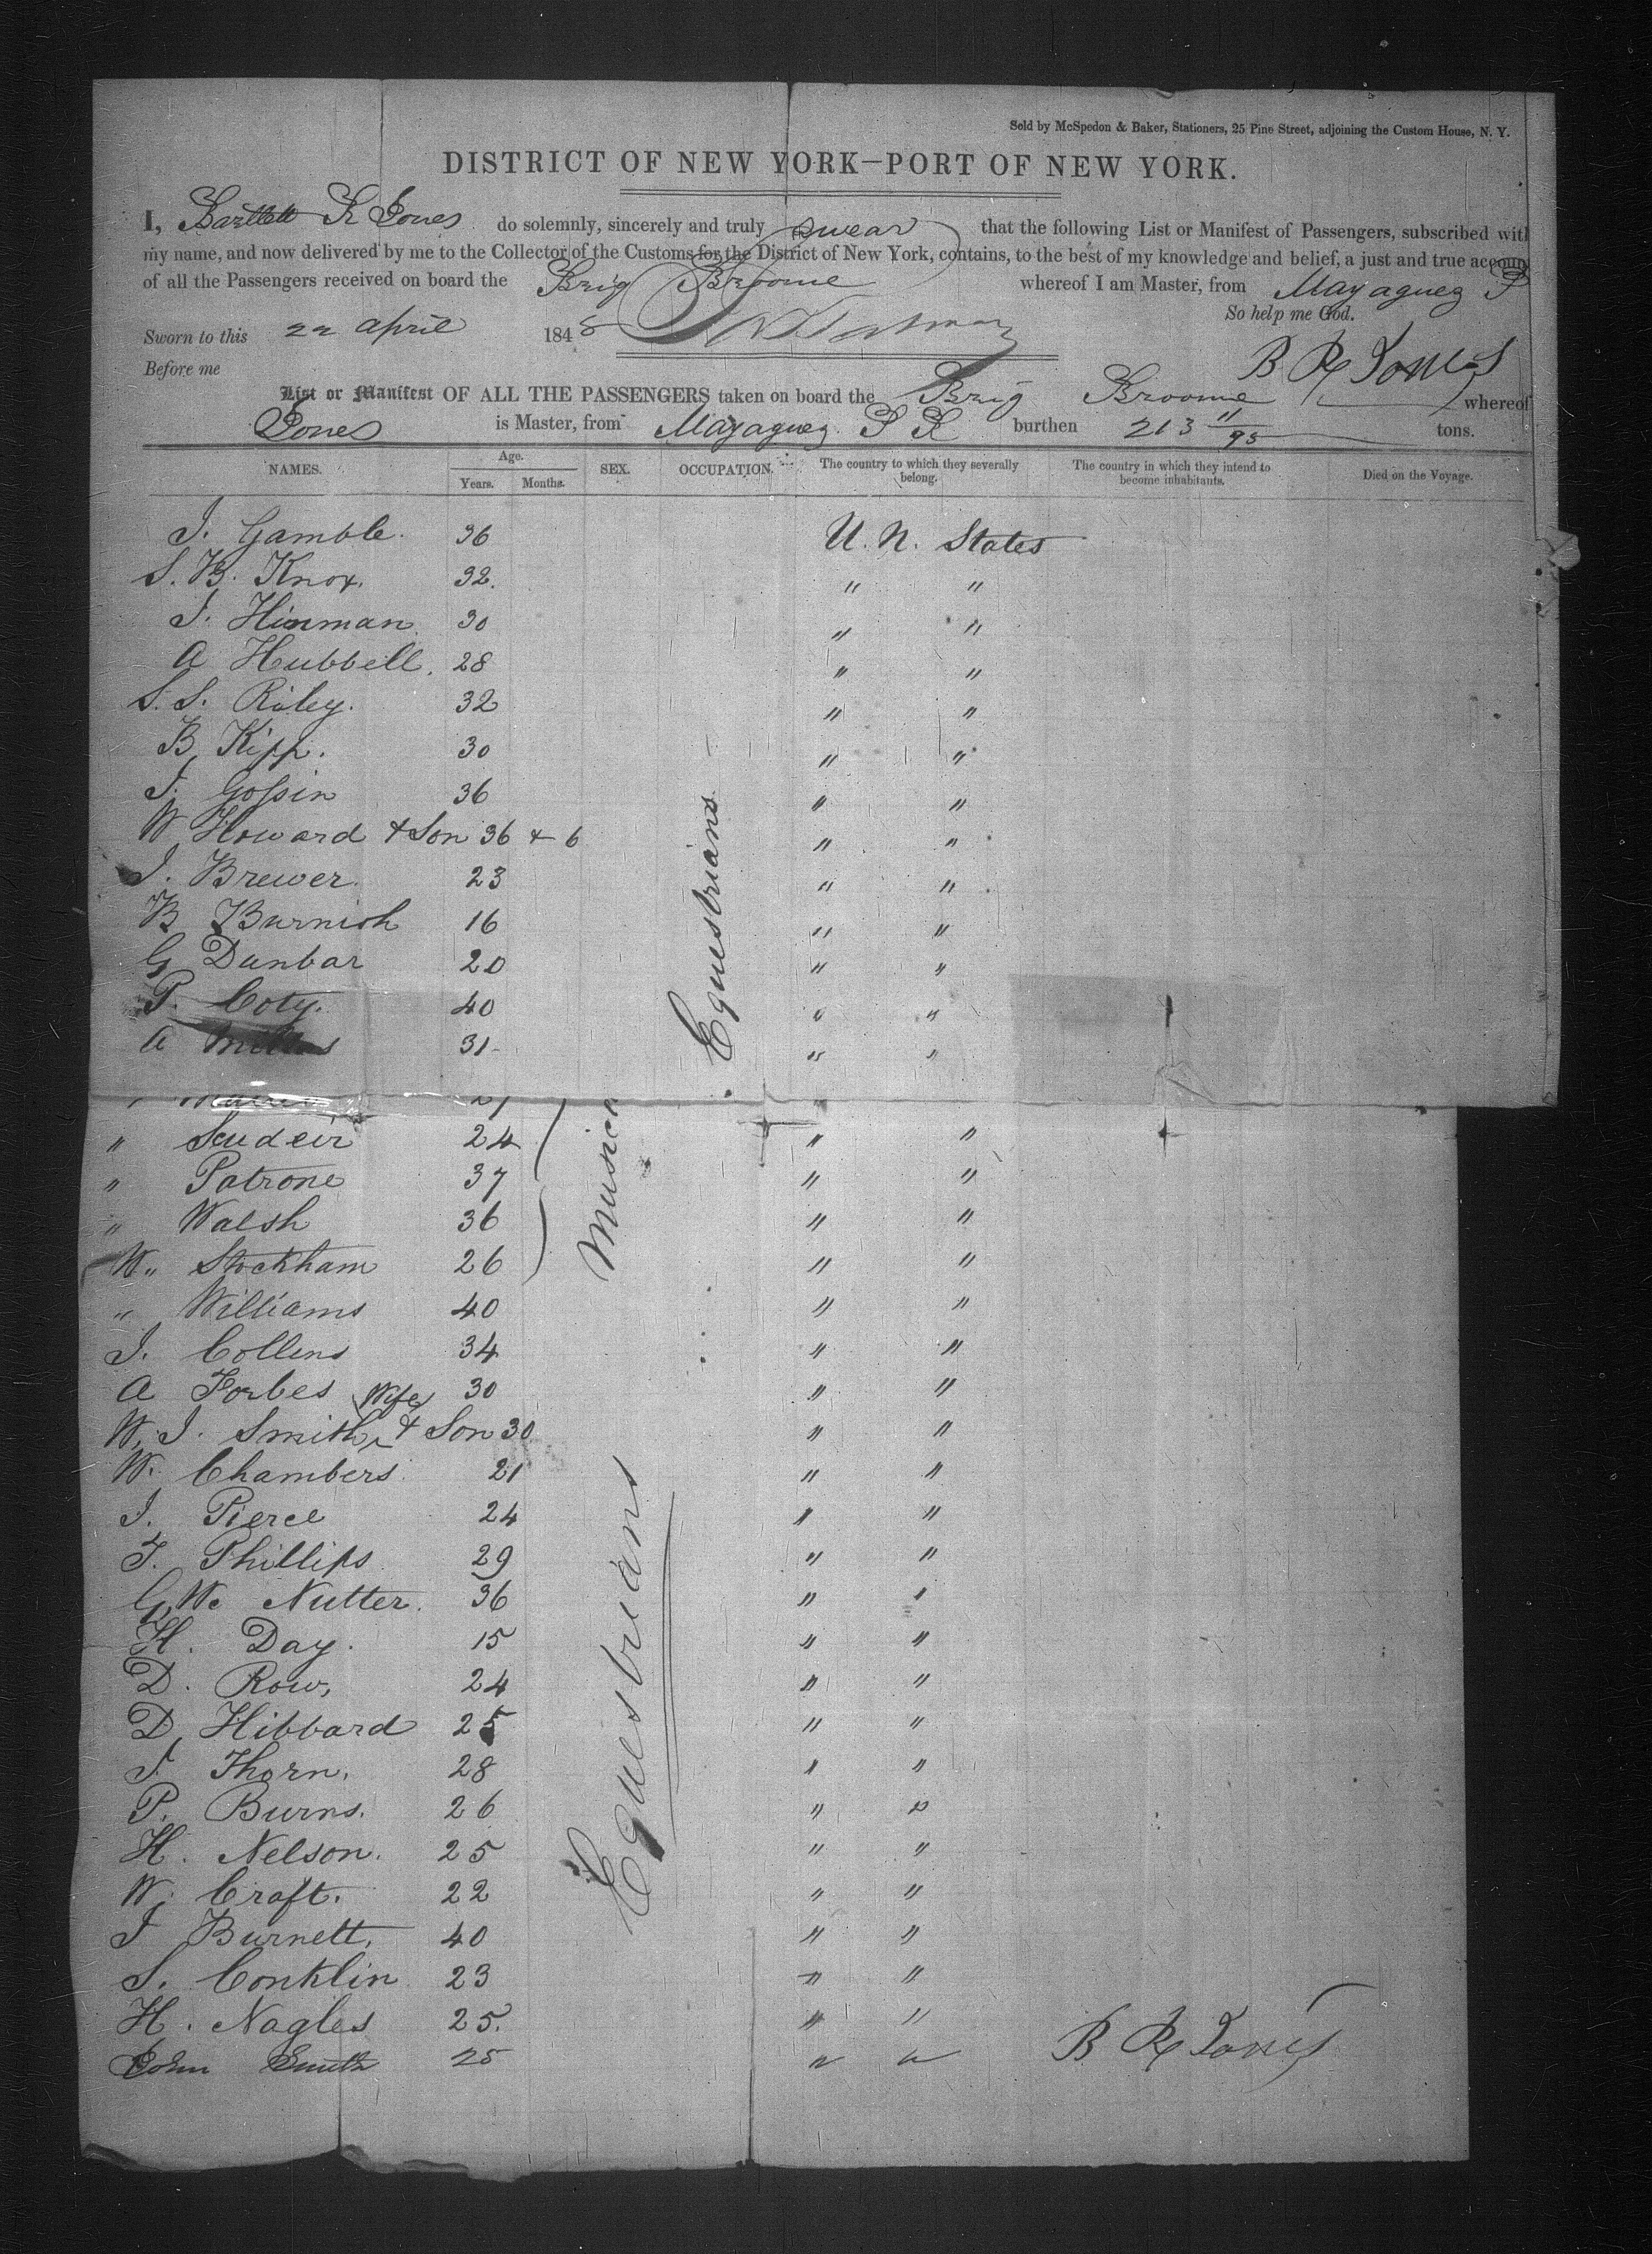 Sold by McSpedon & Baker, Stationers, 25 Pine Street, adjoining the Custom House, N. Y.
DISTRICT OF NEW YORK—PORT OF NEW YORK.
I, Bartlett R Jones do solemnly, sincerely and truly swear that the following List or Manifest of Passengers, subscribed with
my name, and now delivered by me to the Collector of the Customs for the District of New York, contains, to the best of my knowledge and belief, a just and true accoun
of all the Passengers received on board the Brig Broome whereof I am Master, from Mayaguez P
So help me God.
Sworn to this 22 April 1848
Before me
B R Jones
List or Manifest OF ALL THE PASSENGERS taken on board the Brig Broome whereof
Jones is Master, from Mayaguez P R burthen 213 11/95 tons.
NAMES. Age. Years. Months. SEX. OCCUPATION. The country to which they severally belong. The country in which they intend to become inhabitants. Died on the Voyage.
J. Gamble. 36 U. N. States
S. B. Knox. 32. " "
J. Hinman 30 " "
A Hubbell. 28 " "
S. S. Riley. 32 " "
B. Kipp. 30 " "
J. Gossin 36 " "
W Howard & Son 36 & 6 " "
J. Brewer. 23 " "
B Burnish 16 " "
G Dunbar 20 " "
P. Coty. 40 " "
A 31 " "
Equestrians
" Scudeir 24 " "
" Patrone 37 " "
" Walsh 36 " "
W. " Stockham 26 " "
Music
" Williams 40 " "
J. Collens 34 " "
A Forbes 30 " "
W. J. Smith, Wife & Son 30 " "
W. Chambers 21 " "
J. Pierce 24 " "
F. Phillips 29 " "
G. W. Nutter. 36 " "
H. Day. 15 " "
D. Row, 24 " "
D. Hibbard 25 " "
J. Thorn. 28 " "
P. Burns. 26 " "
H. Nelson. 25 " "
W. Craft. 22 " "
J Burnett, 40 " "
S. Conklin 23 " "
H. Nagles 25. " "
John Smith 25 " "
Equestrians
B R Jones